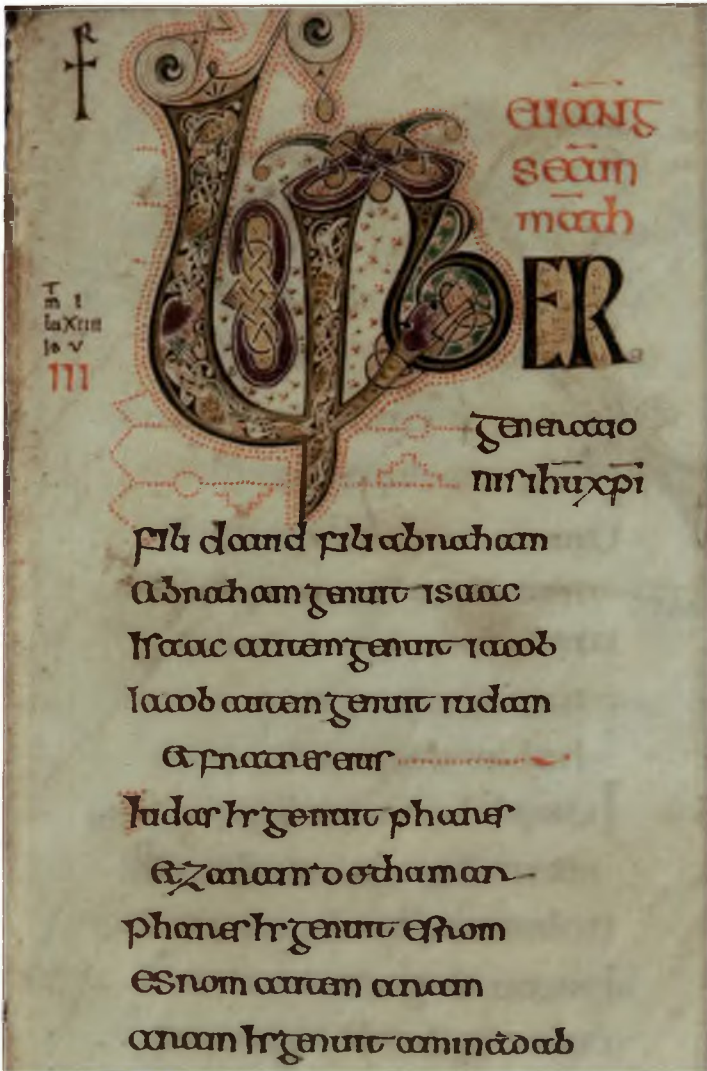 euāng
secūn
māth
LIBER
m i
III
generatio
nis ihū xpī
fili dauid fili abraham
Abraham genuit isaac
Isaac autem genuit iacob
Iacob autem genuit iudam
et fratres eius
Iudas hr genuit phares
et zaram de thamar
phares hr genuit esrom
esrom autem aram
aram hr genuit aminadab